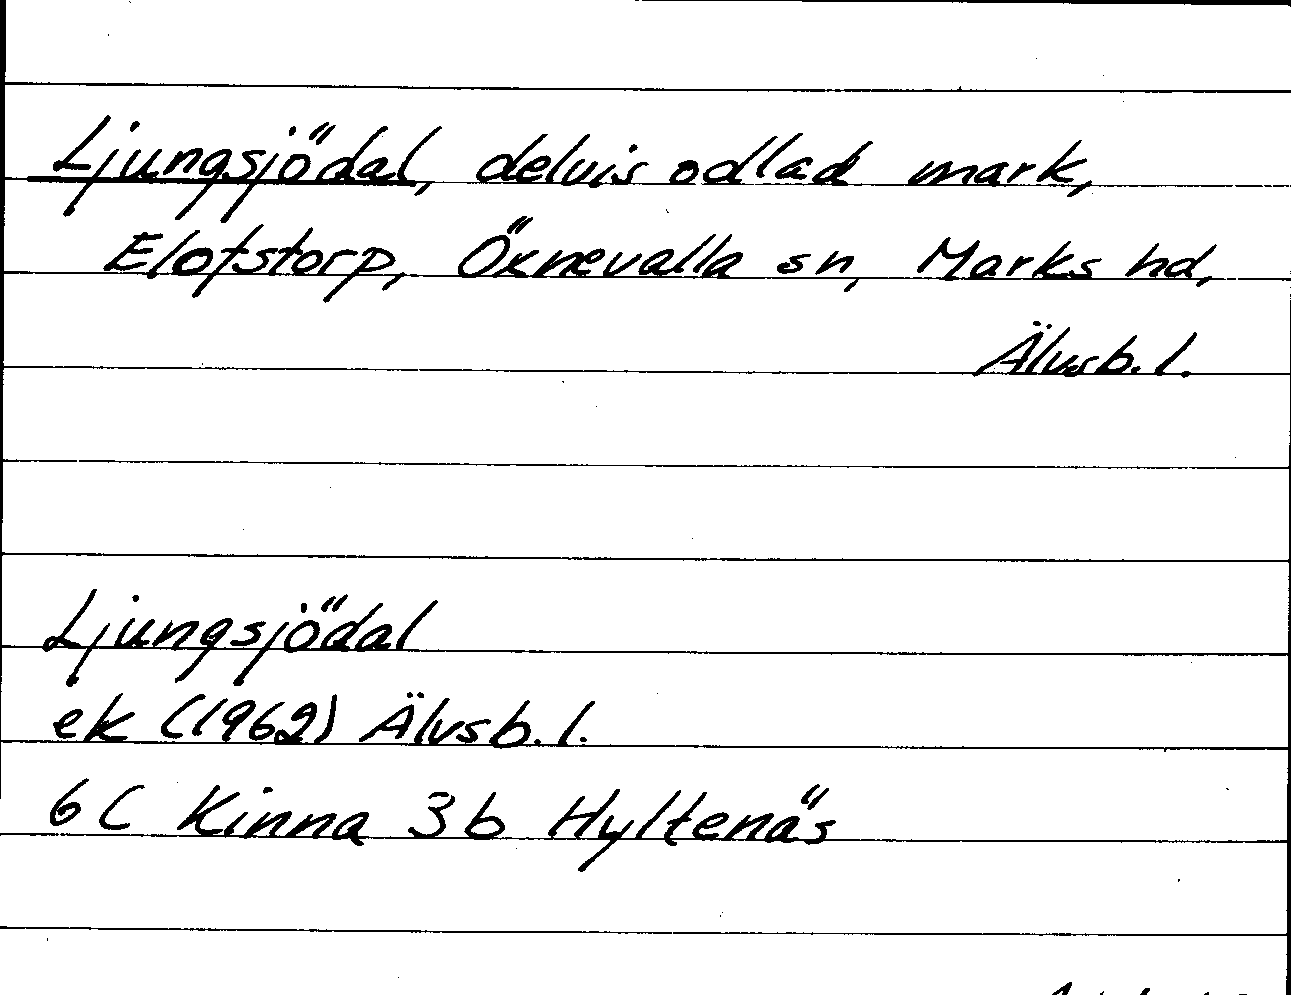 Ljungsjödal, delvis odlad mark,
Elofstorp, Öxnevalla sn, Marks hd,
Älvsb. l.
Ljungsjödal
ek (1962) Älvsb. l.
6 C Kinna 3 b Hyltenäs